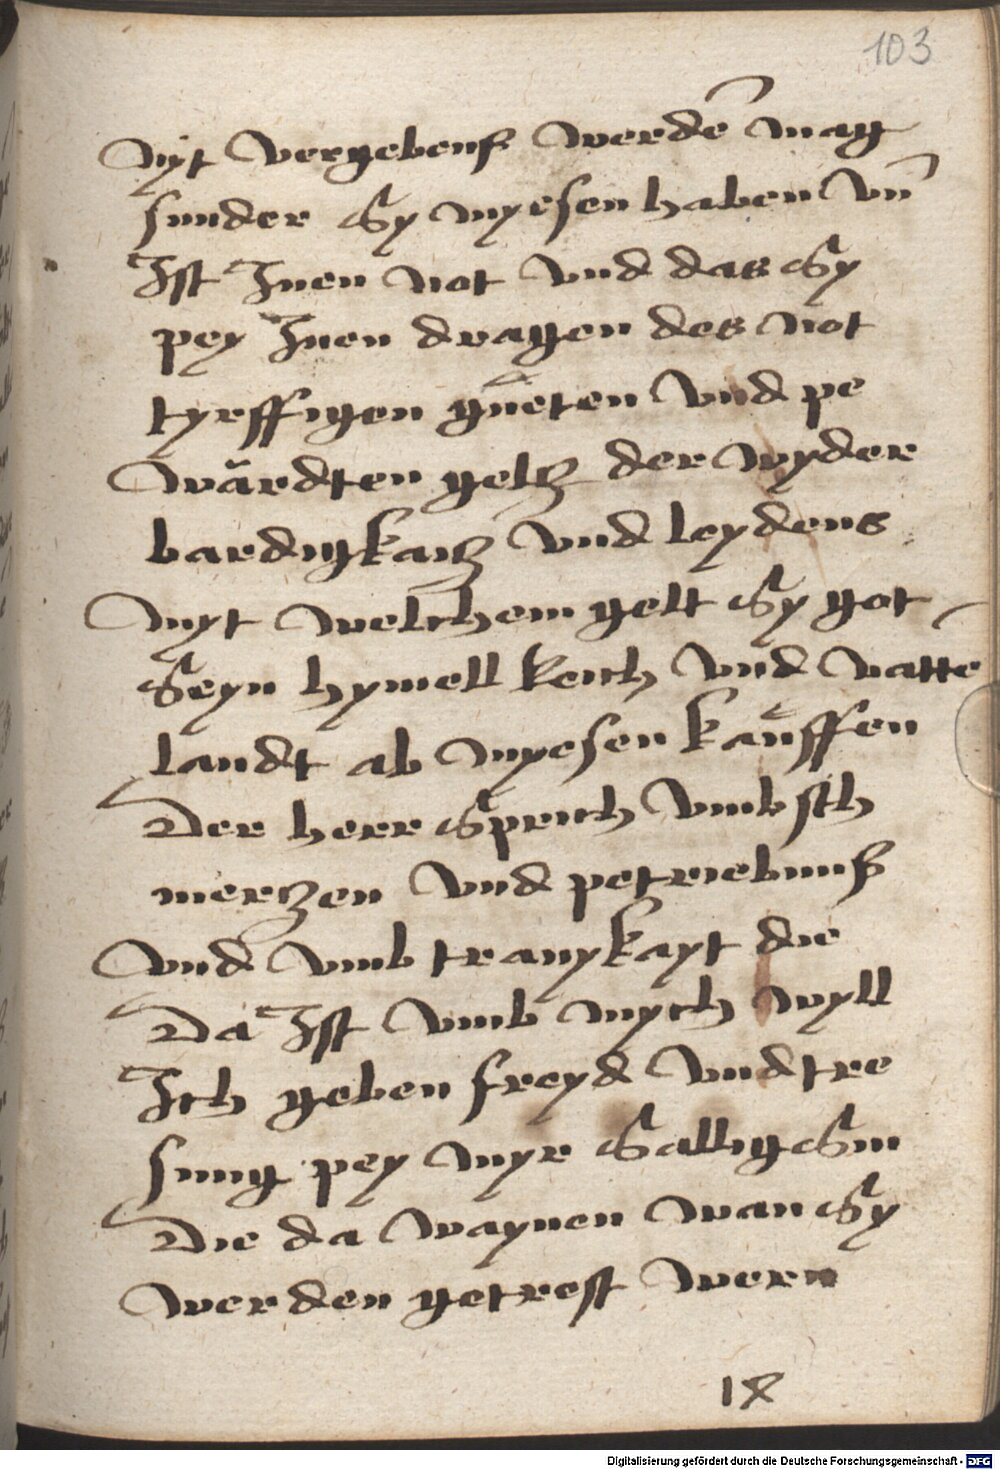 103
nyt vergebens werdē mag
sunder Sy myesen haben vn̄
Ist Inen not vnd das Sy
pey Inen dragen des not
tyrffigen gůeten vnd pe
wärdten geltz der wyder
bardigkaitz vnd leydens
myt welchem gelt Sy got
Seyn hymell Reich vnd vatte
landt ab myesen kauffen
Der herr Sprich vmb sch
merczen vnd petriebnuß
vnd vmb traurykayt die
Da Ist vmb mych wyll
Ich geben freyd vnd tre
sung pey myr Sallig Sin
Die da waynen wan Sy
werden getrest wern
18
Digitalisierung gefördert durch die Deutsche Forschungsgemeinschaft - DFG